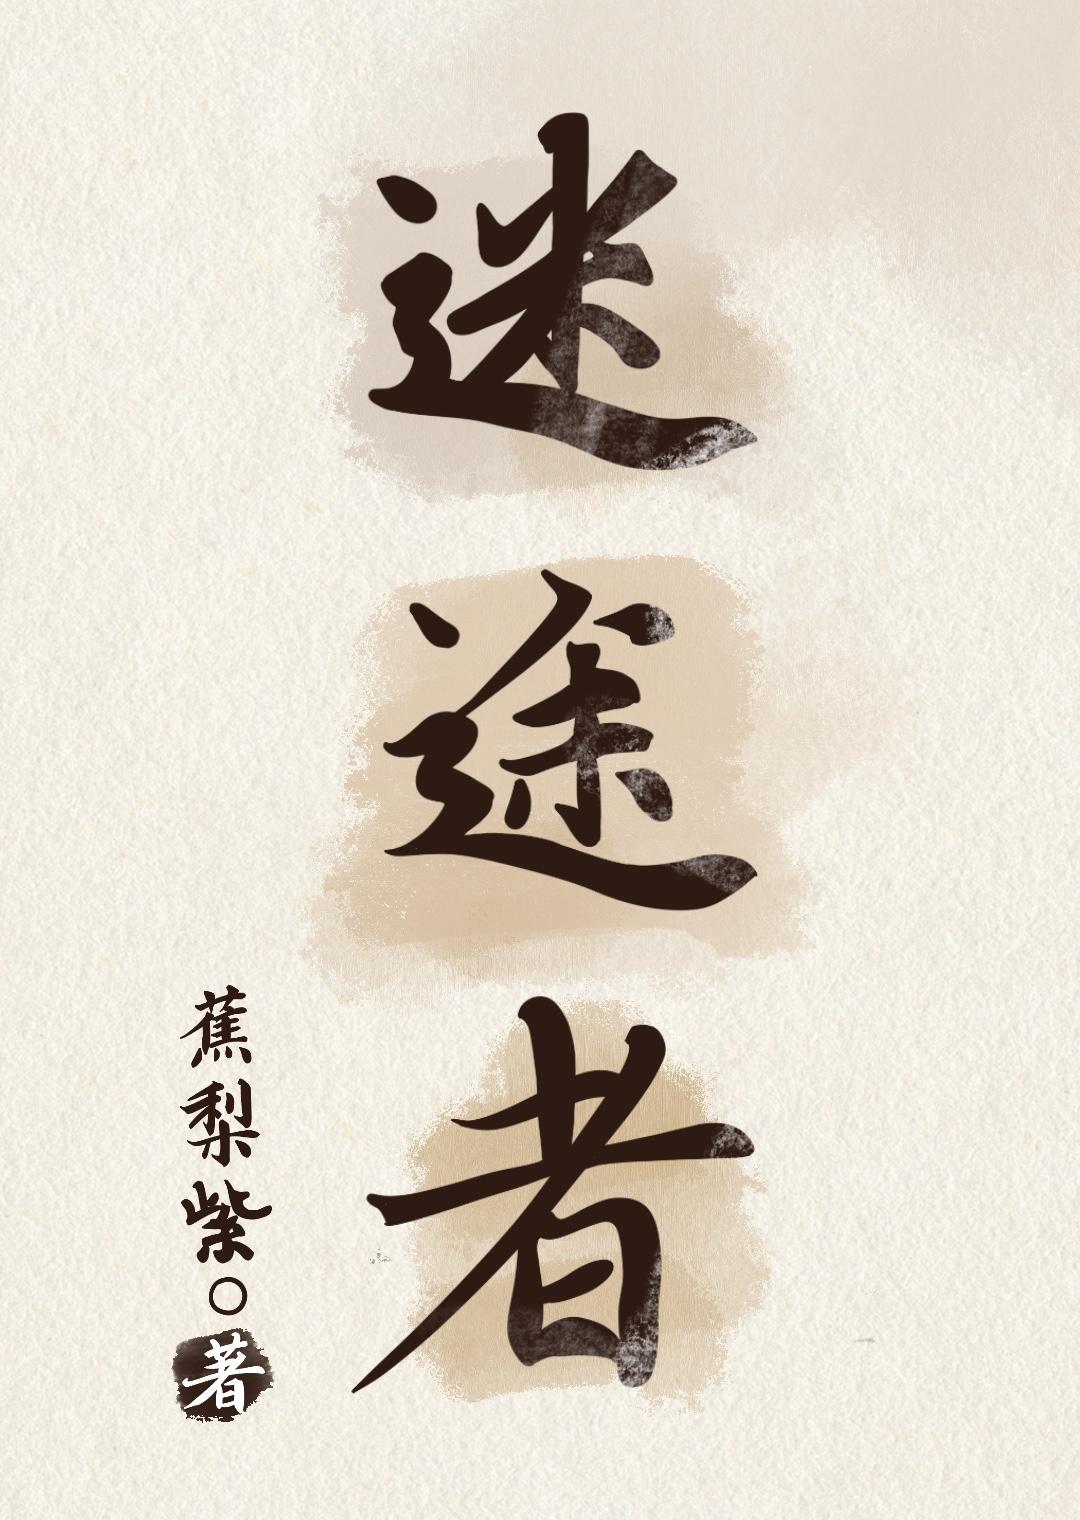 迷途者
蕉梨紫○著